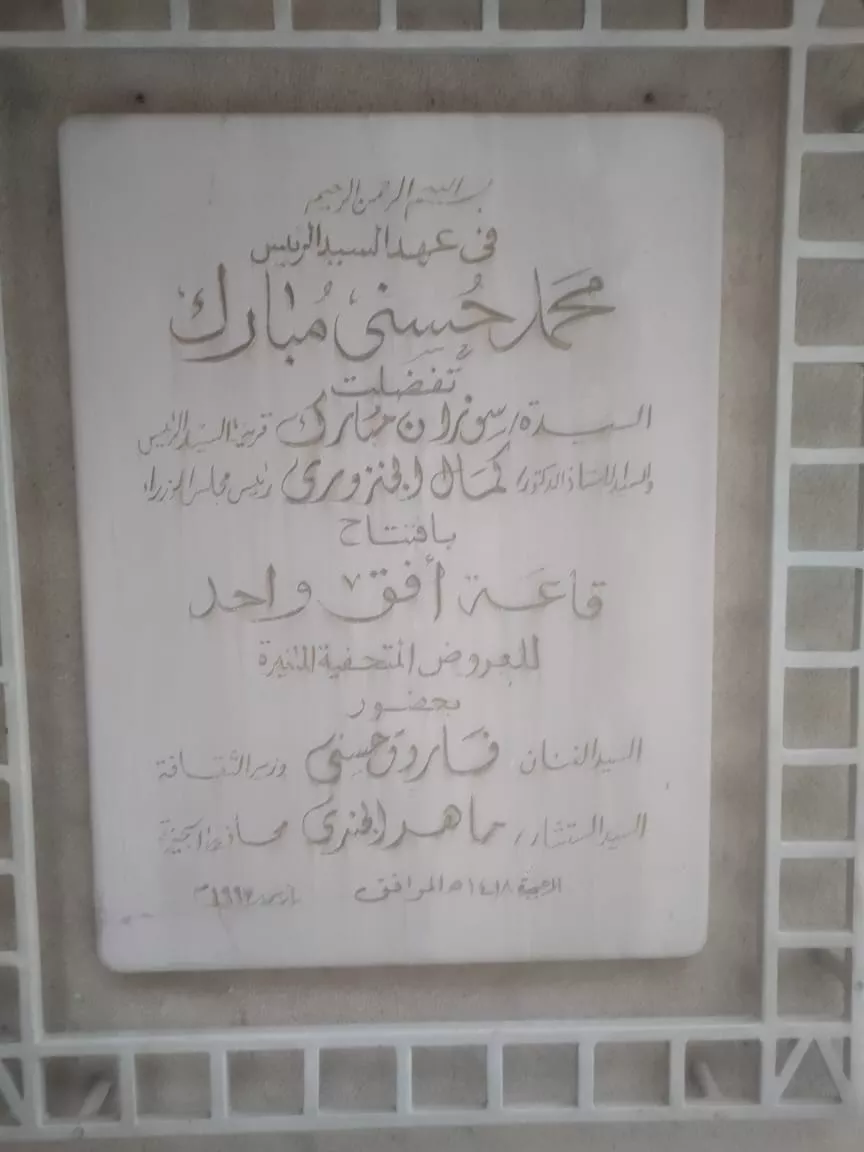 بسم الله الرحمن الرحيم
في عهد السيد الرئيس
محمد حسني مبارك
تفضلت
السيدة/ سوزان مبارك قرينة السيد الرئيس
والسيد الأستاذ الدكتور/ كمال الجنزوري رئيس مجلس الوزراء
بافتتاح
قاعة أفق واحد
للعروض المتحفية المتغيرة
بحضور
السيد الفنان فاروق حسني وزير الثقافة
السيد المستشار/ ماهر الجندي محافظ الجيزة
١٤١٨ هـ الموافق